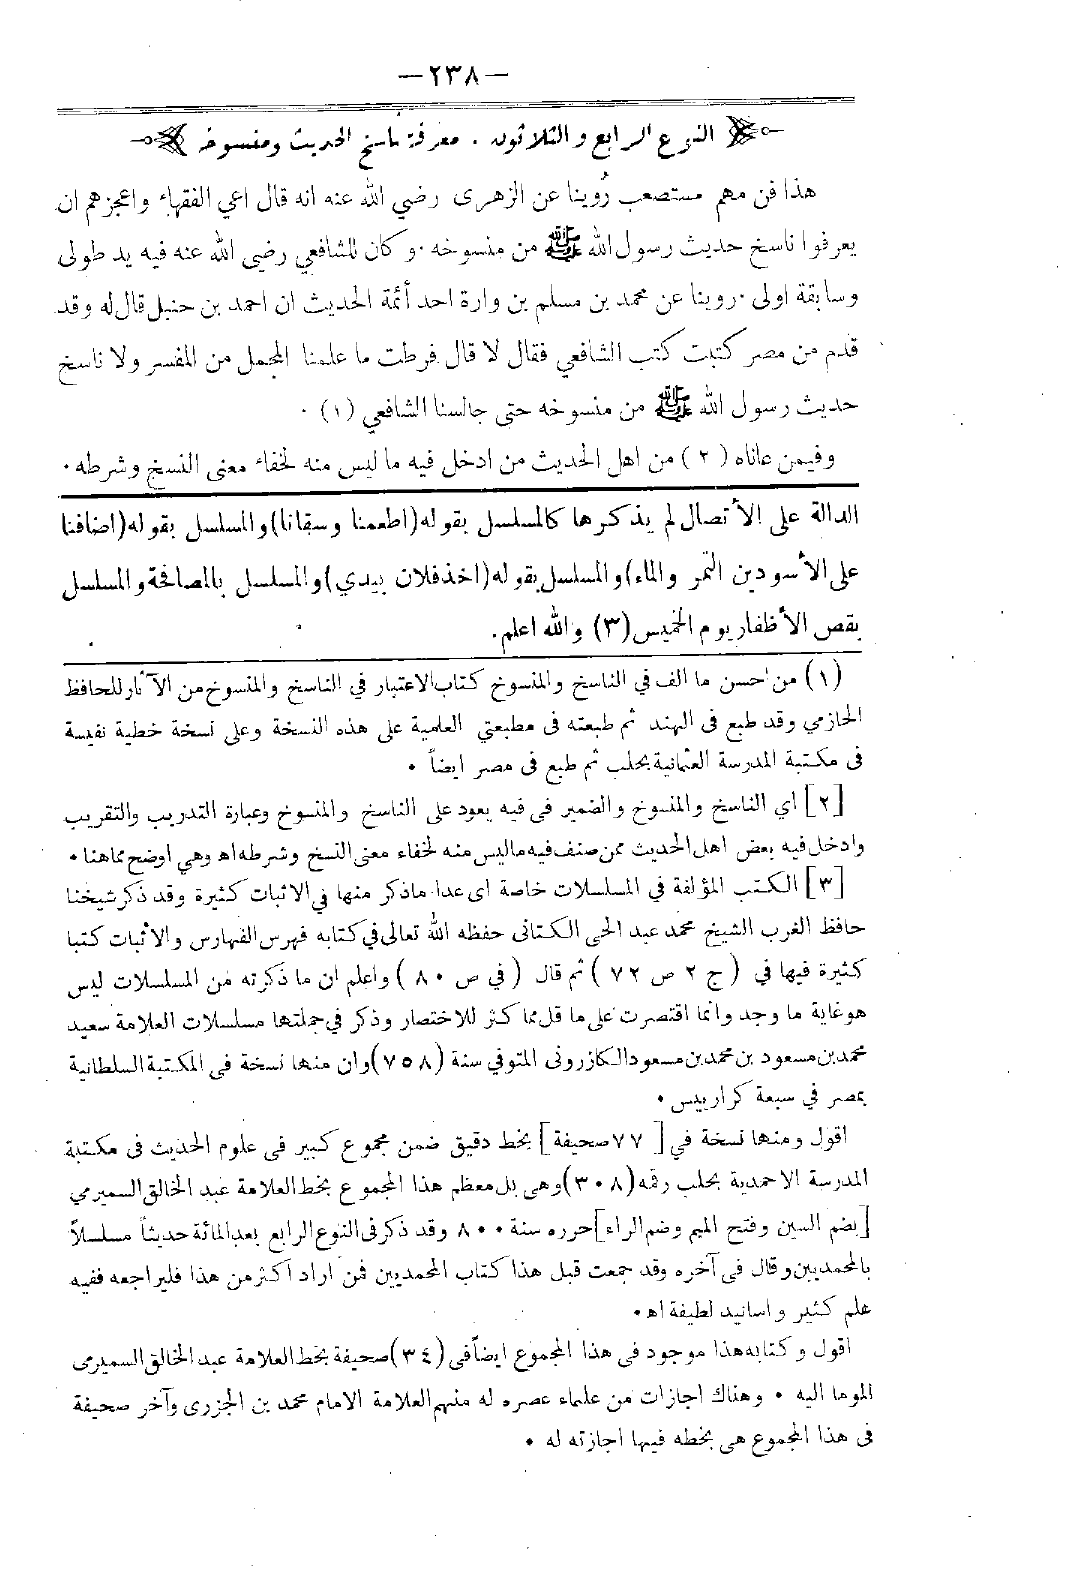 — ٢٣٨ —
النوع الرابع والثلاثون . معرفة ناسخ الحديث ومنسوخه
هذا فن مهم مستصعب رُوينا عن الزهرى رضي الله عنه انه قال اعي الفقهاء واعجزهم ان
يعرفوا ناسخ حديث رسول الله ﷺ من منسوخه . وكان للشافعي رضي الله عنه فيه يد طولى
وسابقة اولى . روينا عن محمد بن مسلم بن وارة احد أئمة الحديث ان احمد بن حنبل قال له وقد
قدم من مصر كتبت كتب الشافعي فقال لا قال فرطت ما علمنا المجمل من المفسر ولا ناسخ
حديث رسول الله ﷺ من منسوخه حتى جالسنا الشافعي (١) .
وفيمن عاناه ( ٢ ) من اهل الحديث من ادخل فيه ما ليس منه لخفاء معنى النسخ وشرطه .
الدالة على الأتصال لم يذكرها كالمسلسل بقوله (اطعمنا وسقانا) والمسلسل بقوله (اضافنا
على الأسودين التمر والماء) والمسلسل بقوله (اخذ فلان بيدي) والمسلسل بالمصافحة والمسلسل
بقص الأظفار يوم الخميس (٣) والله اعلم.
(١) من احسن ما الف في الناسخ والمنسوخ كتاب الاعتبار في الناسخ والمنسوخ من الآثار للحافظ
الحازمي وقد طبع فى الهند ثم طبعته فى مطبعتي العلمية على هذه النسخة وعلى نسخة خطية نفيسة
فى مكتبة المدرسة العثمانية بحلب ثم طبع فى مصر ايضاً •
[٢] أي الناسخ والمنسوخ والضمير فى فيه يعود على الناسخ والمنسوخ وعبارة التدريب والتقريب
وادخل فيه بعض اهل الحديث ممن صنف فيه ما ليس منه لخفاء معنى النسخ وشرطه اه وهي اوضح مما هنا •
[٣] الكتب المؤلفة في المسلسلات خاصة اى عدا ما ذكر منها في الاثبات كثيرة وقد ذكر شيخنا
حافظ الغرب الشيخ محمد عبد الحى الكتانى حفظه الله تعالى في كتابه فهرس الفهارس والاثبات كتبا
كثيرة فيها في ( ج ٢ ص ٧٢ ) ثم قال ( في ص ٨٠ ) واعلم ان ما ذكرته من المسلسلات ليس
هو غاية ما وجد وانما اقتصرت على ما قل مما كثر للاختصار وذكر في جملتها مسلسلات العلامة سعيد
محمد بن مسعود بن محمد بن مسعود الكازرونى المتوفي سنة (٧٥٨) وان منها نسخة فى المكتبة السلطانية
بمصر في سبعة كراريس •
اقول ومنها نسخة في [ ٧٧ صحيفة ] بخط دقيق ضمن مجموع كبير فى علوم الحديث فى مكتبة
المدرسة الاحمدية بحلب رقمه (٣٠٨) وهى بل معظم هذا المجموع بخط العلامة عبد الخالق السميرمي
[بضم السين وفتح الميم وضم الراء] حرره سنة ٨٠٠ وقد ذكر فى النوع الرابع بعد المائة حديثاً مسلسلاً
بالمحمديين وقال فى آخره وقد جمعت قبل هذا كتاب المحمديين فمن اراد اكثر من هذا فليراجعه ففيه
علم كثير واسانيد لطيفة اه •
اقول وكتابه هذا موجود فى هذا المجموع ايضاً في (٣٤) صحيفة بخط العلامة عبد الخالق السميرمى
الموما اليه • وهناك اجازات من علماء عصره له منهم العلامة الامام محمد بن الجزرى وآخر صحيفة
فى هذا المجموع هى بخطه فيها اجازته له •